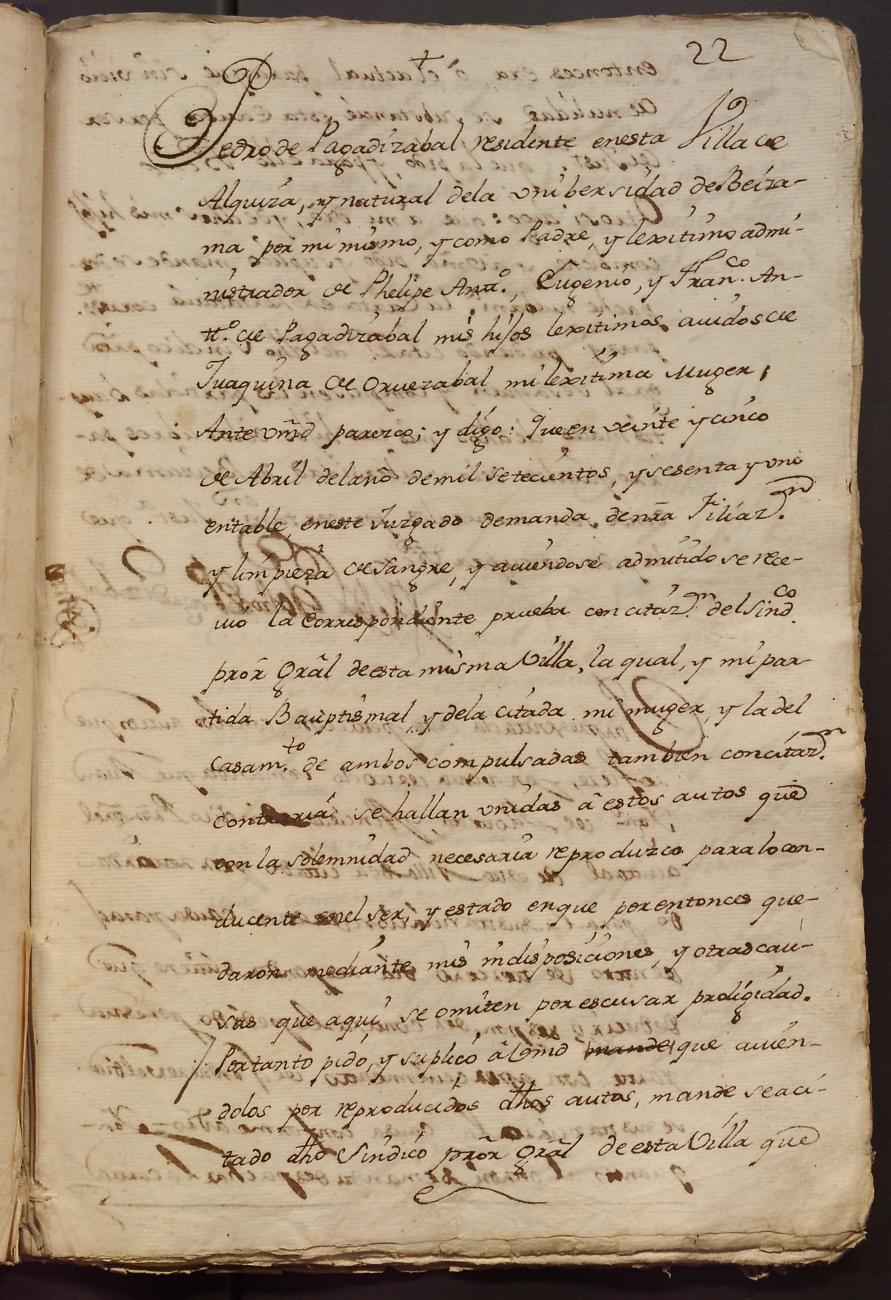 22
Pedro de Pagadizabal residente enesta Villa de
Alquiza, y natural dela vnibersidad de Beiza-
ma por mi mismo, y como Padre, y lexitimo admi-
nistrador de Phelipe Antt.º, Eugenio, y Fran.co An-
tt.º de Pagadizabal mis hijos lexitimos auidos de
Juaquina de Oruezabal mi lexitima Muger,
Ante vmd parezco; y digo: Que en veinte y cinco
de Abril del año de mil setecientos, y sesenta y vno
entable, eneste Juzgado demanda de nra Filiaz.on
y limpieza de sangre, y auiendose admitido se rece-
uio la correspondiente prueba con citaz.on del Sind.co
pror Gral de esta misma Villa, la qual, y mi par-
tida Baptismal, y dela citada mi muger, y la del
Casam.to de ambos compulsadas tambien con citaz.on
contraria se hallan vnidas â estos autos que
con la solemnidad necesaria reproduzco para lo con-
ducente enel ser, y estado en que por entonces que-
daron mediante mis indisposiciones, y otras cau-
sas que aqui se omiten por escusar proligidad.
Portanto pido, y suplico â Vmd mande, que auien-
dolos por reproducidos dhos autos, mande sea ci-
tado dho Sindico pror Gral de esta Villa que